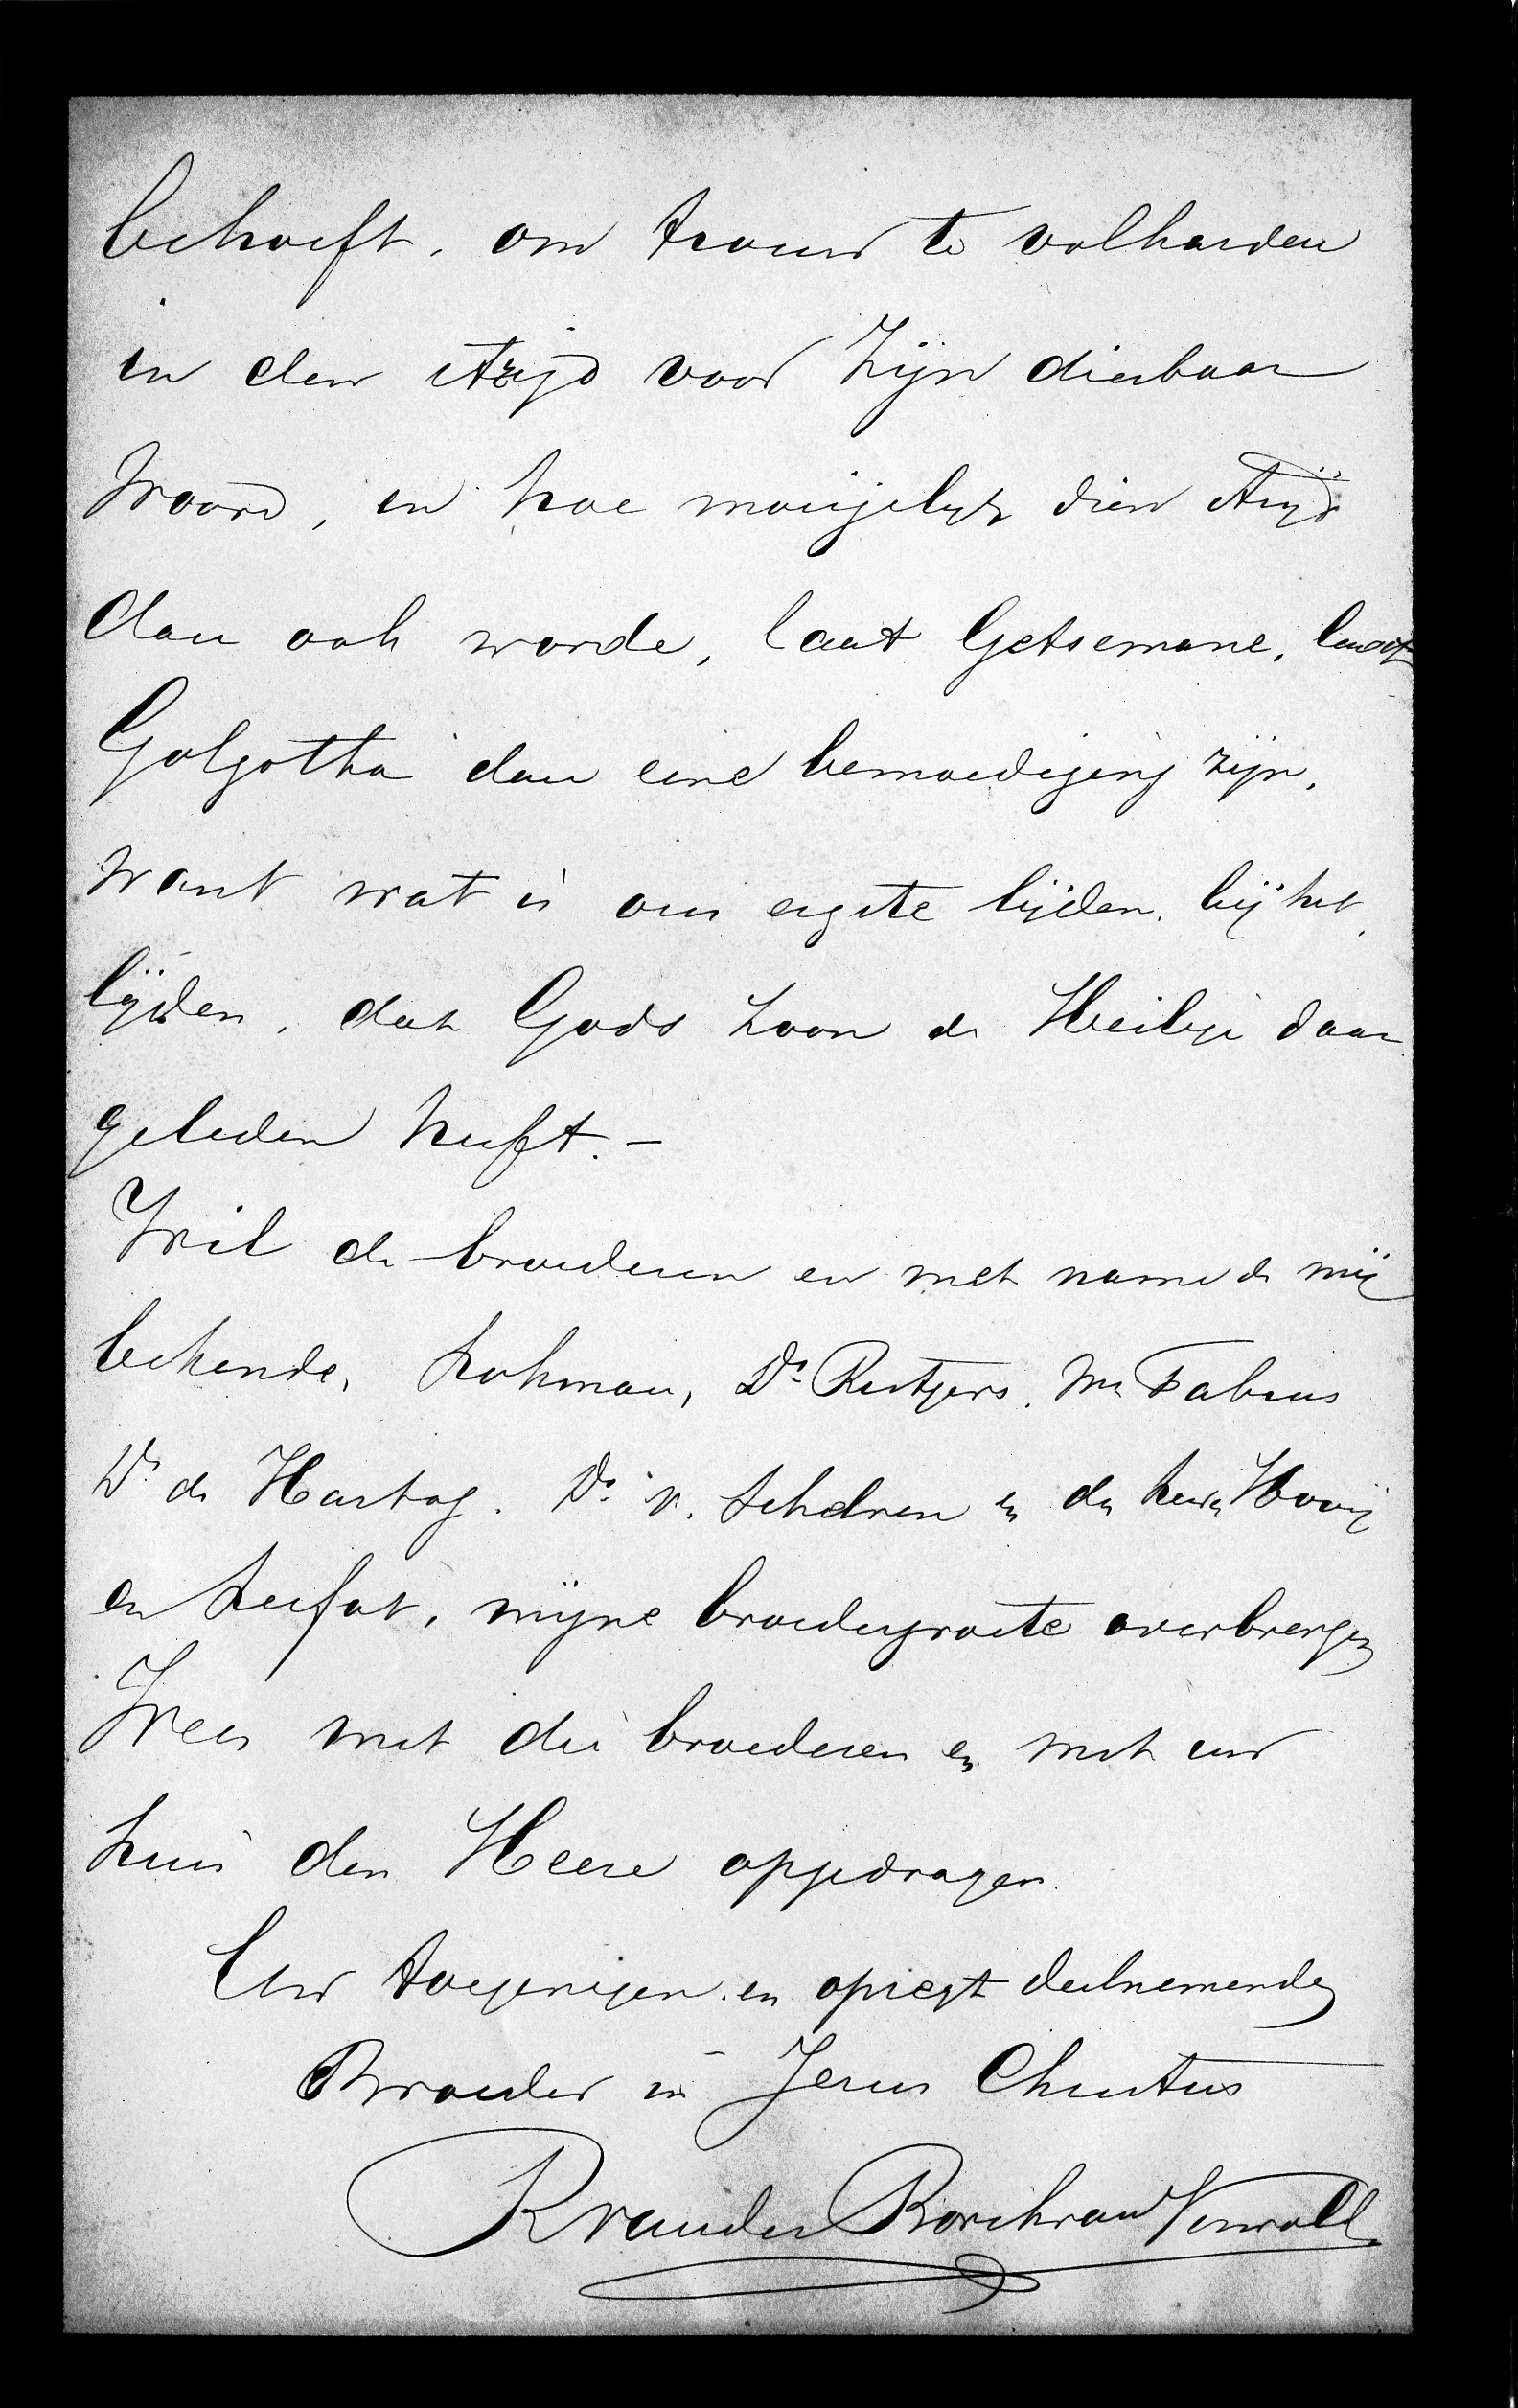 behoeft, om trouw te volharden
in den strijd voor Zijn dierbaar
Woord, en hoe moeijelijk dien strijd
dan ook worde, laat Getsemane, laat
Golgotha dan eene bemoediging zijn,
want wat is ons ergste lijden, bij het
lijden, dat Gods Zoon de Heilige daar
geleden heeft. -
Wil de broederen en met name de mij
bekende, Lohman, Dr. Rutgers, Mr Fabius
Ds. de Hartog. Ds. v. Schelven en de heeren Hovij
en Seefat, mijne broedergroete overbrengen
Wees met die broederen en met uw
huis den Heere opgedragen.
Uw toegenegen en opregt deelnemende
Broeder in Jesus Christus
R van der Borch van Verwolde